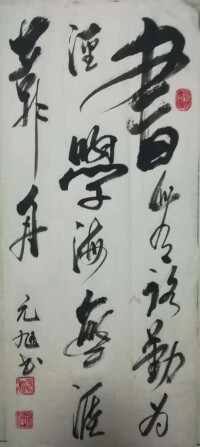 書山有路勤为
徑學海無涯
苦作舟
元旭书